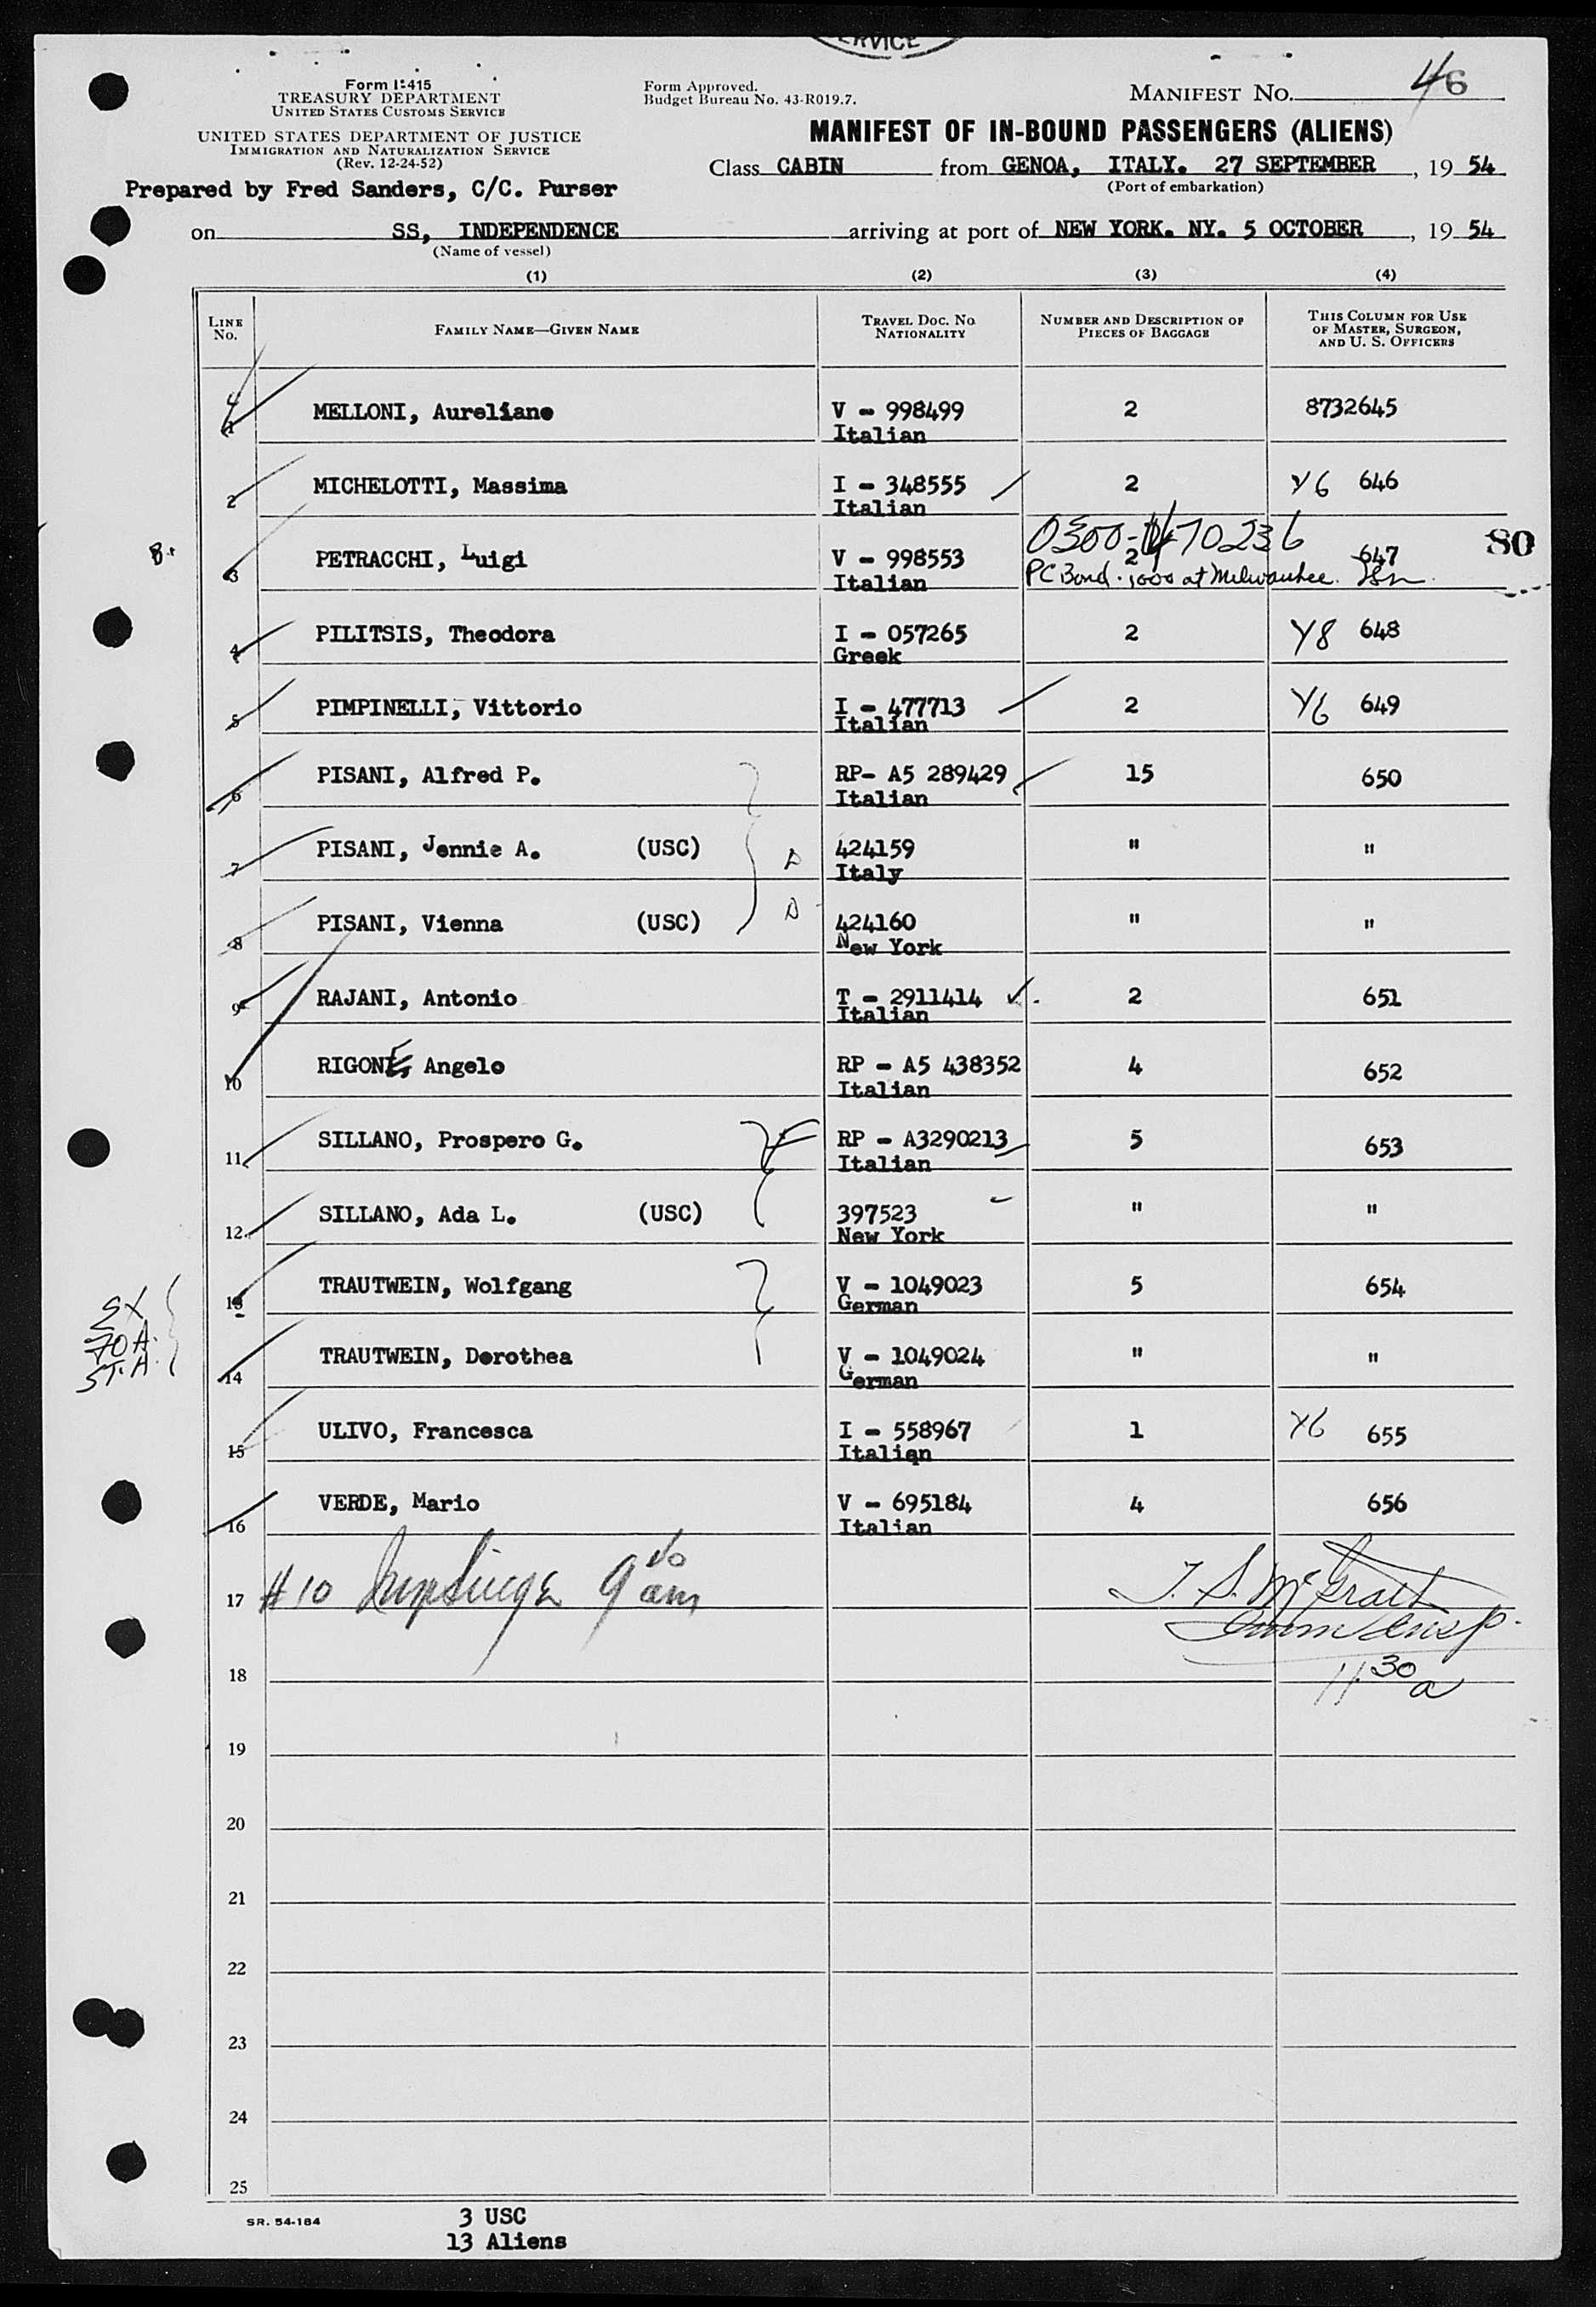 ERVICE
Form I-415
TREASURY DEPARTMENT
UNITED STATES CUSTOMS SERVICE
UNITED STATES DEPARTMENT OF JUSTICE
IMMIGRATION AND NATURALIZATION SERVICE
(Rev. 12-24-52)
Prepared by Fred Sanders, C/C. Purser
Form Approved.
Budget Bureau No. 43-R019.7.
MANIFEST NO. 46
MANIFEST OF IN-BOUND PASSENGERS (ALIENS)
Class CABIN from GENOA, ITALY. 27 SEPTEMBER, 19 54
(Port of embarkation)
on SS, INDEPENDENCE arriving at port of NEW YORK. NY. 5 OCTOBER, 19 54
(Name of vessel)
(1) (2) (3) (4)
LINE No. FAMILY NAME—GIVEN NAME TRAVEL DOC. NO. NATIONALITY NUMBER AND DESCRIPTION OF PIECES OF BAGGAGE THIS COLUMN FOR USE OF MASTER, SURGEON, AND U. S. OFFICERS
1 MELLONI, Aureliano V - 998499 2 8732645
Italian
2 MICHELOTTI, Massima I - 348555 2 Y6 646
Italian
0300-470236
3 PETRACCHI, Luigi V - 998553 2 647 80
Italian PC Bond. 1000 at Milwaukee.
4 PILITSIS, Theodora I - 057265 2 Y8 648
Greek
5 PIMPINELLI, Vittorio I - 477713 2 Y6 649
Italian
6 PISANI, Alfred P. RP- A5 289429 15 650
Italian
7 PISANI, Jennie A. (USC) 424159 " "
Italy
8 PISANI, Vienna (USC) 424160 " "
New York
9 RAJANI, Antonio T - 2911414 2 651
Italian
10 RIGONE, Angelo RP - A5 438352 4 652
Italian
11 SILLANO, Prospero G. RP - A3290213 5 653
Italian
12 SILLANO, Ada L. (USC) 397523 " "
New York
13 TRAUTWEIN, Wolfgang V - 1049023 5 654
German
14 TRAUTWEIN, Dorothea V - 1049024 " "
German
15 ULIVO, Francesca I - 558967 1 Y6 655
Italian
16 VERDE, Mario V - 695184 4 656
Italian
17 #10 T. S. McGrath
Imm Insp.
18 11 30 a
19
20
21
22
23
24
25
SR. 54-184
3 USC
13 Aliens